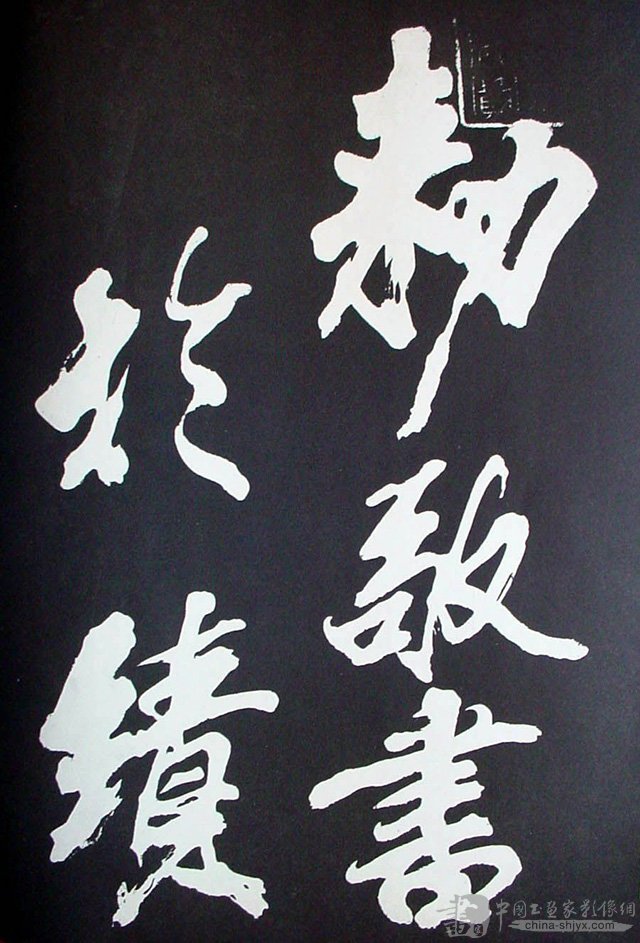 勅敢書
於績
書
中國书画家影像網
china-shjyx.com